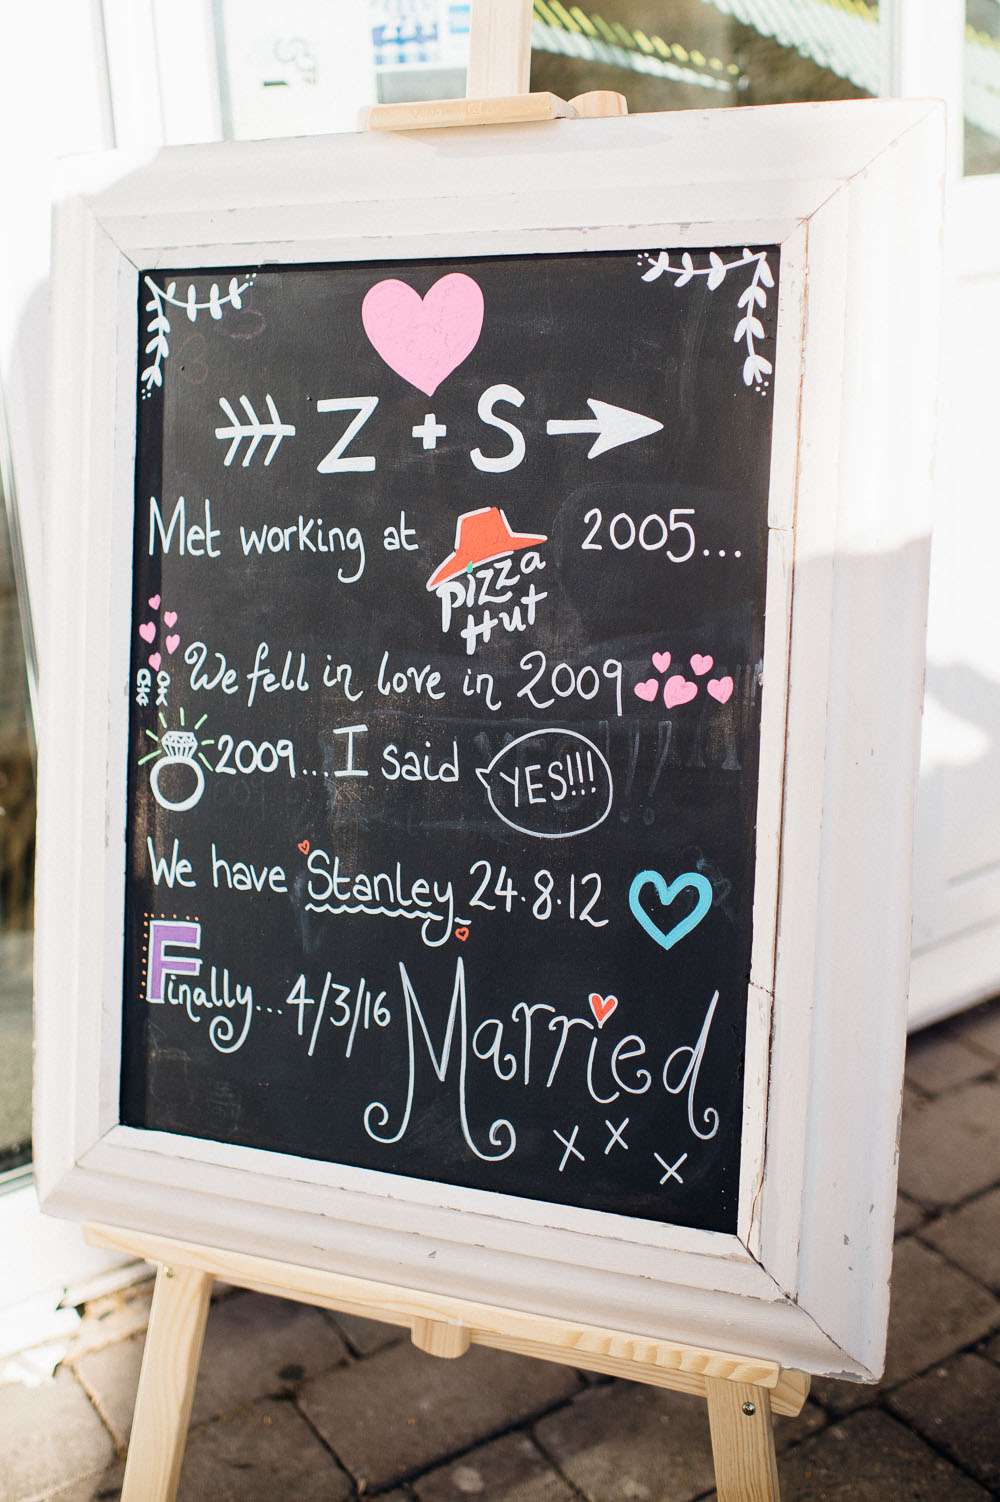 Z + S
Met working at Pizza Hut 2005...
We fell in love in 2009
2009...I said YES!!!
We have Stanley 24.8.12
Finally...4/3/16 Married
x x x